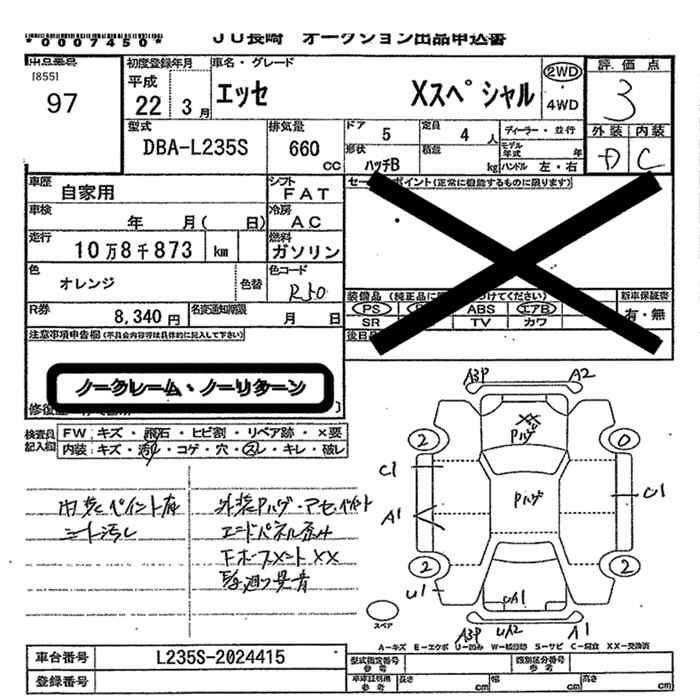 *0007450*
JU長崎 オークション出品申込書
出品番号
[855]
97
初度登録年月
平成
22 3月
車名・グレード
エッセ Xスペシャル
2WD
・
4WD
評価点
3
型式
DBA-L235S
排気量
660
cc
ドア 5
定員 4 人
ディーラー・並行
形状 ハッチB
積載 kg
モデル年式 年
ハンドル 左・右
外装 内装
D C
車歴
自家用
シフト
FAT
車検
年 月( 日)
冷房
AC
走行
10万8千873 km
燃料
ガソリン
色
オレンジ
色替
色コード
R50
R券
8,340円
名変通知期限
月 日
セールスポイント(正常に機能するものに限ります)
装備品
PS ABS エアB
SR TV カワ
新車保証書
有・無
後日品
注意事項申告欄(不具合内容等は具体的に記入して下さい)
ノークレーム・ノーリターン
検査員
記入欄
FW キズ・飛石・ヒビ割・リペア跡・×要
内装 キズ・汚れ・コゲ・穴・スレ・キレ・破レ
内装ペイント有
シート汚レ
外装Pハゲ・アセ・ペイント
エンドパネル歪み
A3P A2
2 0
C1 U1
A1
Pハゲ
2 2
U1
UA1
A3P UA2 A1
スペア
A-キズ E-エクボ U-凹み W-補修跡 S-サビ C-腐食 XX-交換済
車台番号
L235S-2024415
登録番号
型式指定番号
参考
類別区分番号
参考
車庫証明用
参考
長さ cm
幅 cm
高さ cm